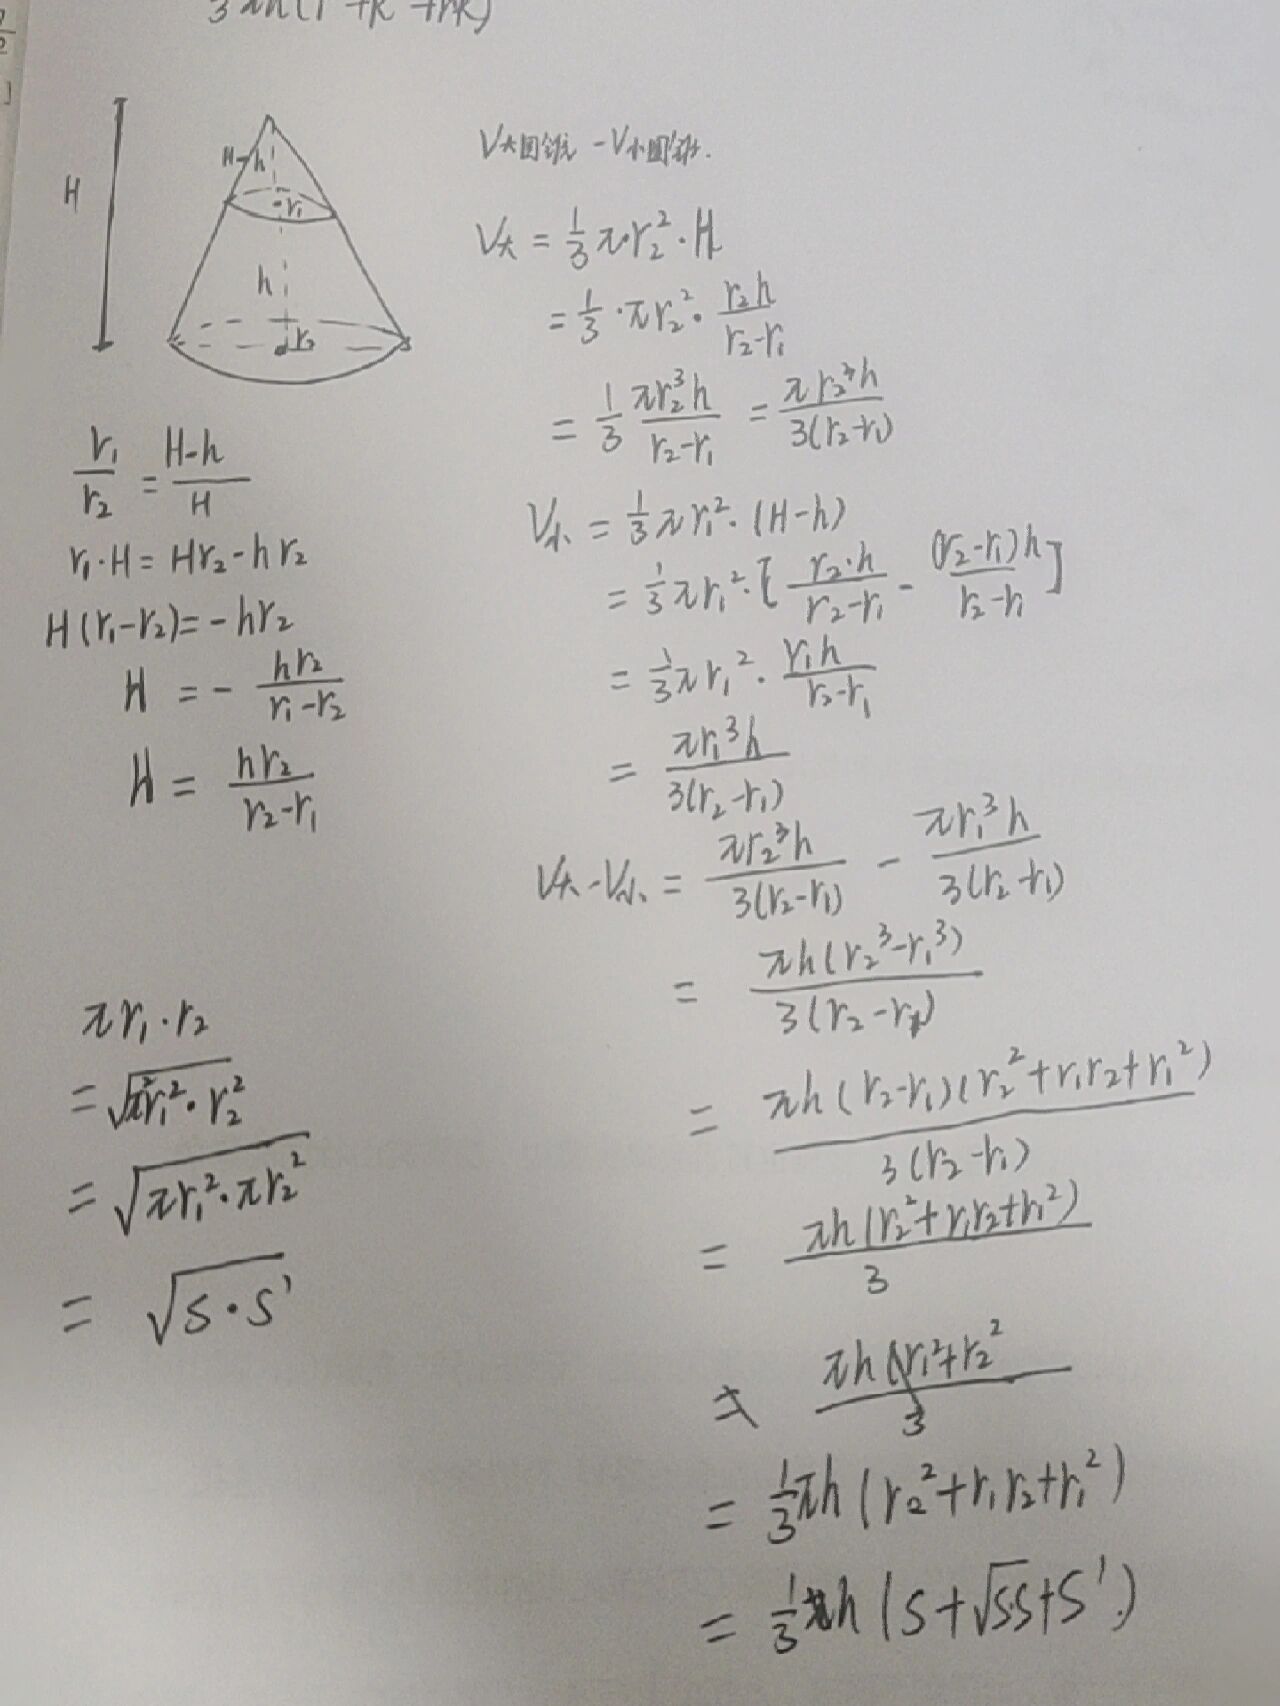 H
H-h
r₁
h
r₂
r₁/r₂ = (H-h)/H
r₁·H = Hr₂-hr₂
H(r₁-r₂)=-hr₂
H = - hr₂/(r₁-r₂)
H = hr₂/(r₂-r₁)
πr₁·r₂
= √(π²r₁²·r₂²)
= √(πr₁²·πr₂²)
= √(S·S')
V大圆锥 - V小圆锥.
V大 = 1/3 π·r₂²·H
= 1/3·πr₂²· r₂h/(r₂-r₁)
= 1/3 πr₂³h/(r₂-r₁) = πr₂³h/3(r₂-r₁)
V小 = 1/3 πr₁²·(H-h)
= 1/3 πr₁²·[r₂·h/(r₂-r₁) - (r₂-r₁)h/(r₂-r₁)]
= 1/3 πr₁²· r₁h/(r₂-r₁)
= πr₁³h/3(r₂-r₁)
V大-V小 = πr₂³h/3(r₂-r₁) - πr₁³h/3(r₂-r₁)
= πh(r₂³-r₁³)/3(r₂-r₁)
= πh(r₂-r₁)(r₂²+r₁r₂+r₁²)/3(r₂-r₁)
= πh(r₂²+r₁r₂+r₁²)/3
= πh(r₁²+r₂²/3
= 1/3 πh(r₂²+r₁r₂+r₁²)
= 1/3 h(S+√SS+S')